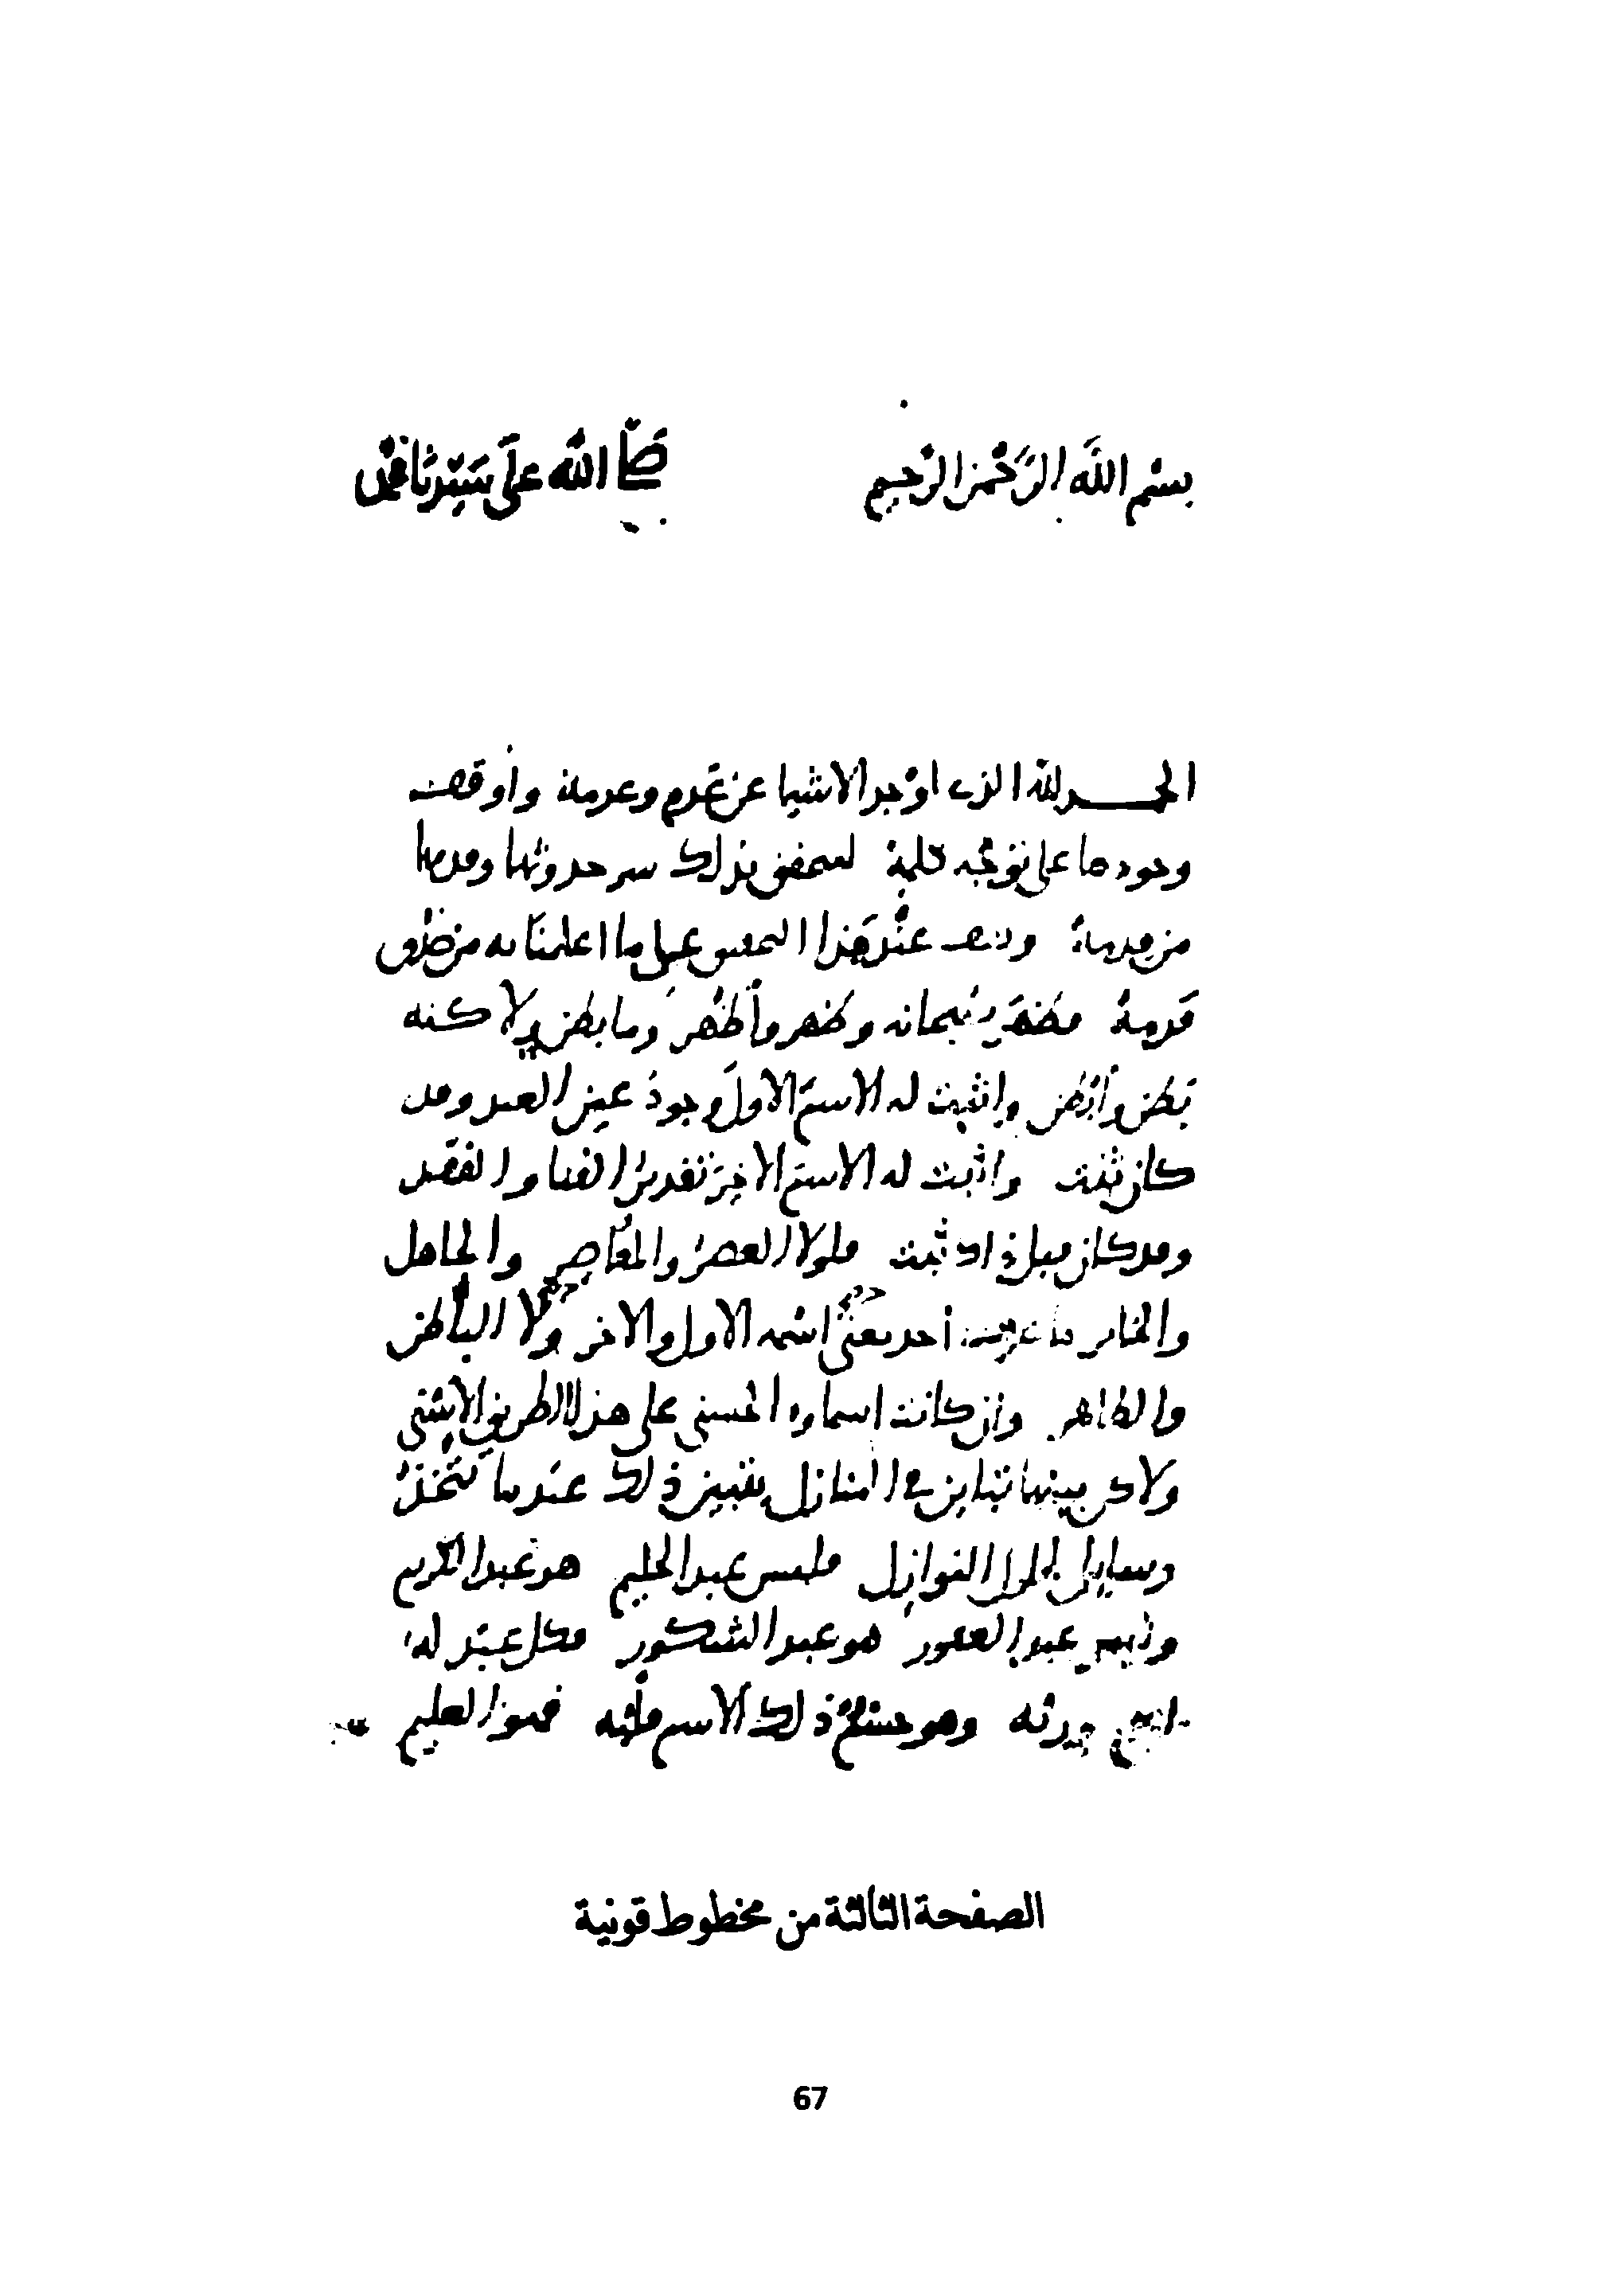 بسم الله الرحمن الرحيم صلى الله على سيدنا محمد
الحمد لله الذى اوجد الاشيا عن عدم وعدمه واوقف
وجودها على توجه كلمه لنحقق بذلك سر حدوثها وقدمها
من قدمه ونقف عند هذا التحقيق على ما اعلمنا به من صدق
قدمه فظهر سبحانه وظهر وأظهر وما بطن ولا كنه
بطن وأبطن واثبت له الاسم الاول وجود عين العبد وقد
كان ثبت واثبت له الاسم الاخر تقدير الفنا والفقد
وقد كان قبل ذلك ثبت فلولا العصر والمعاصر والجاهل
والخابر ما عرف أحد معنى اسمه الاول والاخر ولا الباطن
والظاهر وان كانت اسماوه الحسنى على هذا الطريق الاسنى
ولاكن بينها تباين في المنازل يتبين ذلك عندما تتخذ
وسايل لحلول النوازل فليس عبد الحليم هو عبد الكريم
وليس عبد الغفور هو عبد الشكور فكل عبد له
اسم هو ربه وهو جسم ذلك الاسم قلبه فهو العليم
الصفحة الثالثة من مخطوط قونية
67